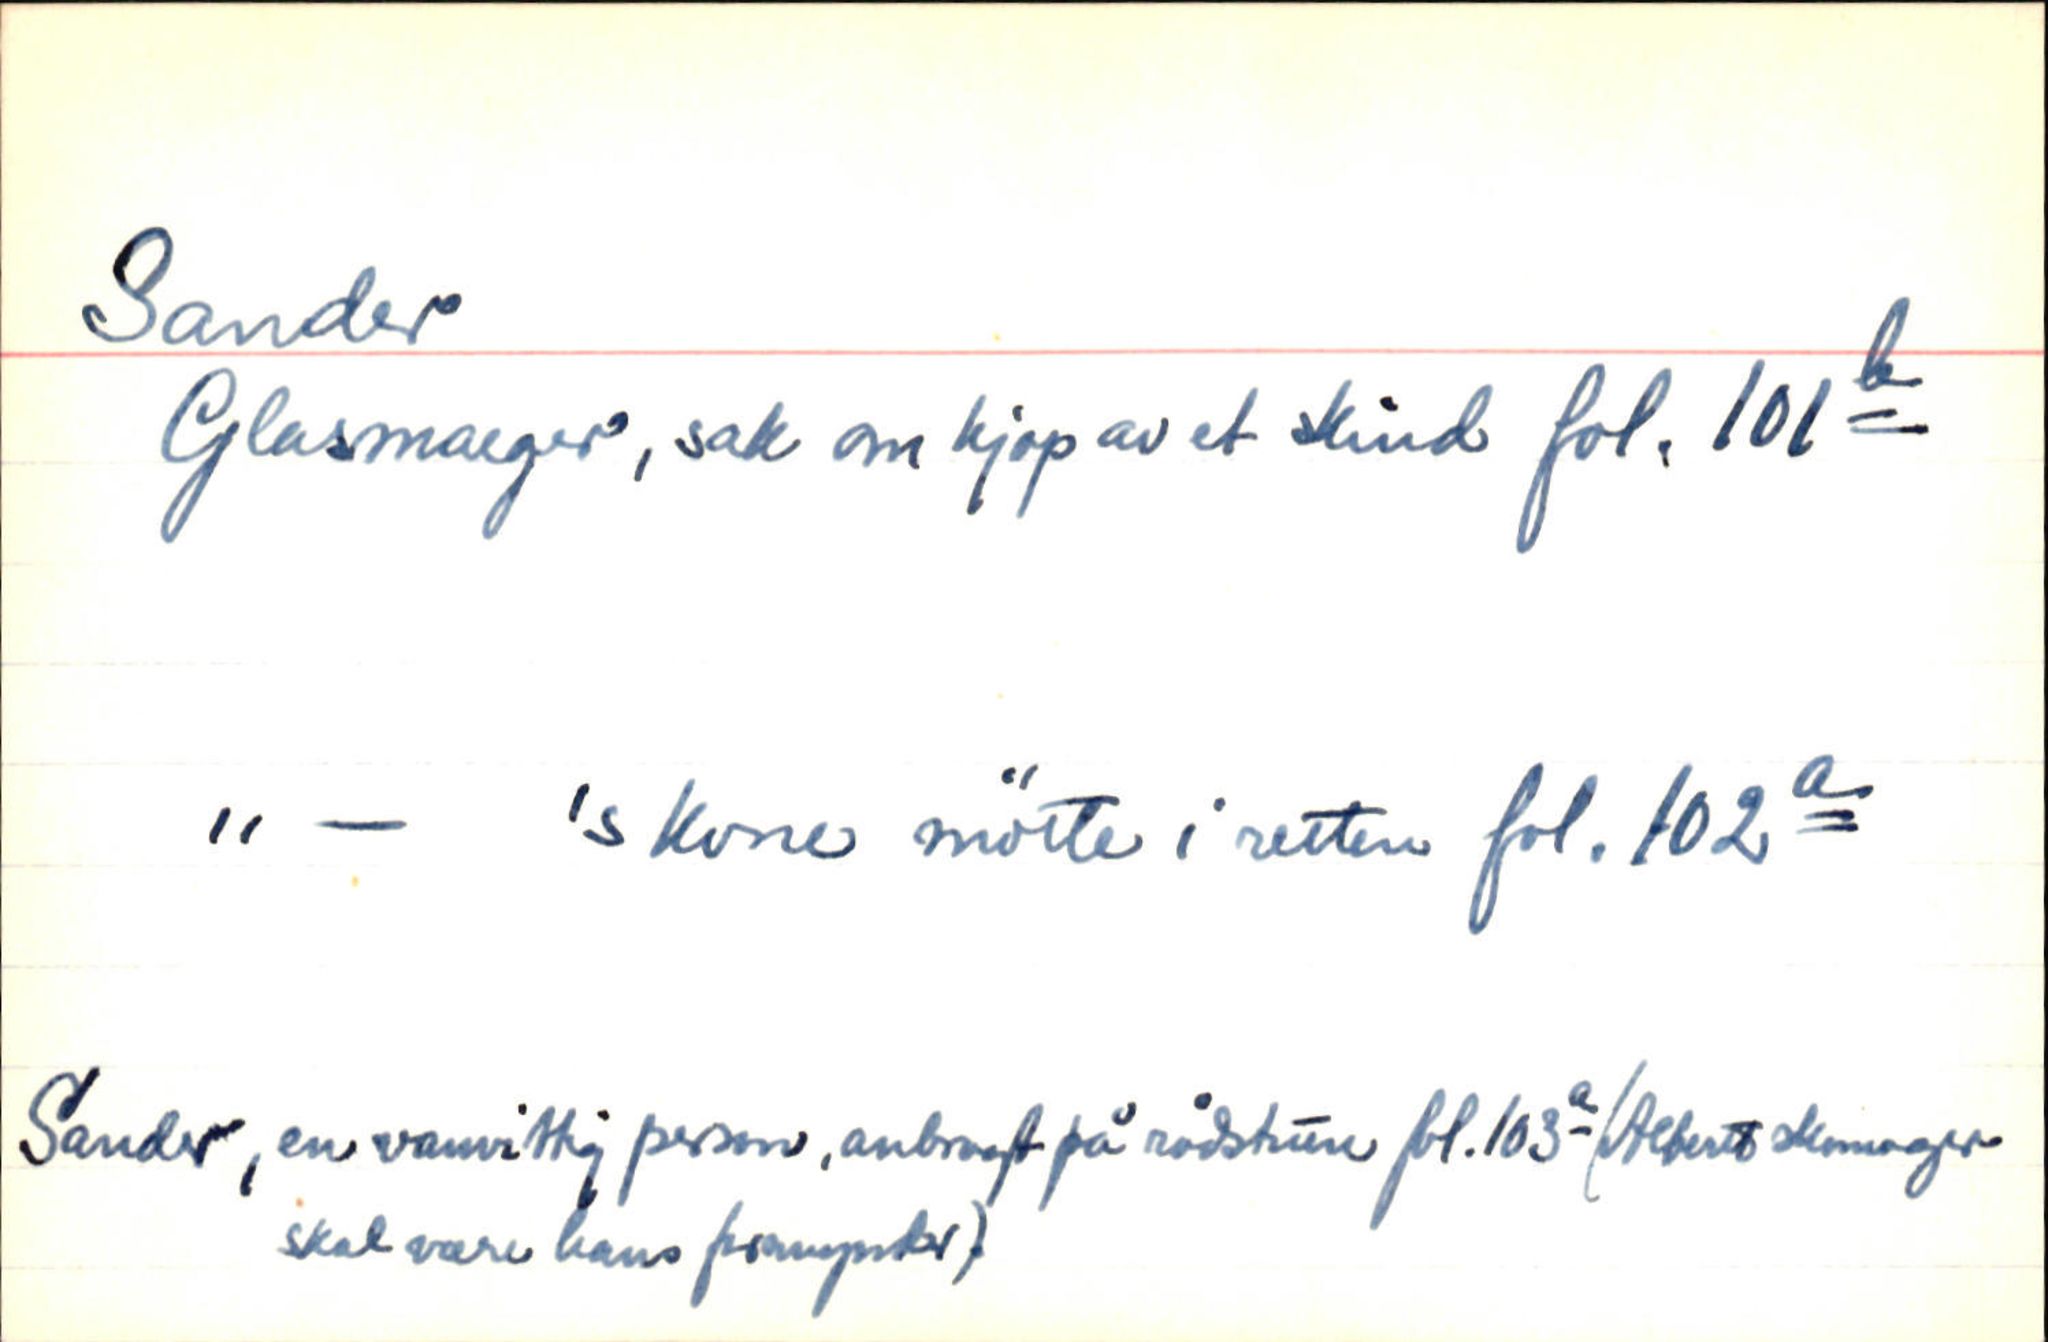 Sander
Glasmager, sak om kjøp av et skind fol. 101 b
" — 's kone mötte i retten fol. 102 a
Sander, en vanvittig person, anbragt på rådstuen fol. 103 a (Albert skomager
skal være hans formynder)